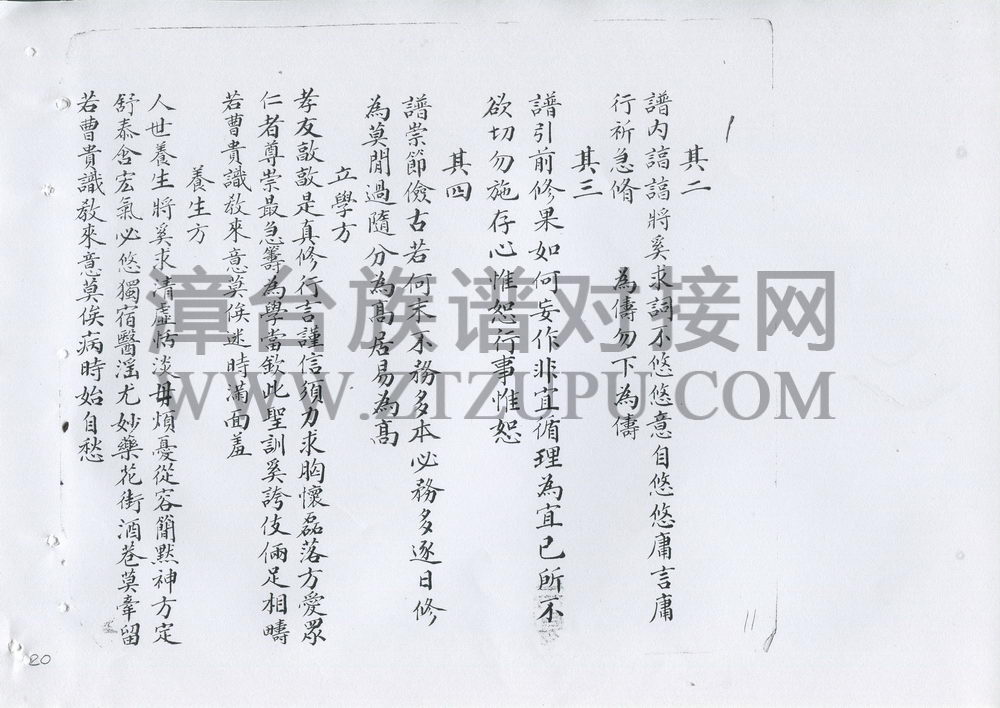 其二
譜內謞謞將奚求詞不悠悠意自悠悠庸言庸
行祈急脩 為儔勿下為儔
其三
譜引前修果如何妄作非宜循理為宜已所不
欲切勿施存心惟恕行事惟恕
其四
譜崇節儉古若何末不務多本必務多逐日修
為莫閒過隨分為高居易為高
立學方
孝友敦敦是真修行言謹信須力求胸懷磊落方愛眾
仁者尊崇最急籌為學當欽此聖訓奚誇伎倆足相疇
若曹貴識教來意莫俟迷時滿面羞
養生方
人世養生將奚求清虛恬淡毋煩憂從容簡默神方定
舒泰含宏氣必悠獨宿醫淫尤妙藥花街酒巷莫牽留
若曹貴識教來意莫俟病時始自愁
11
20
漳台族谱对接网
WWW.ZTZUPU.COM